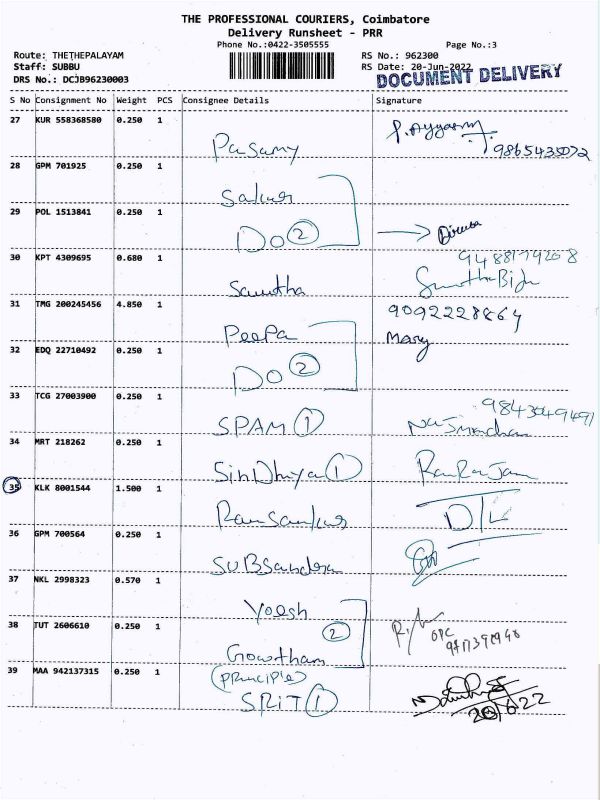 THE PROFESSIONAL COURIERS, Coimbatore
Delivery Runsheet - PRR
Phone No.:0422-3505555 Page No.:3
Route: THETHEPALAYAM RS No.: 962300
Staff: SUBBU RS Date: 20-Jun-2022
DRS No.: DCJB96230003 DOCUMENT DELIVERY
S No Consignment No Weight PCS Consignee Details Signature
27 KUR 558368580 0.250 1
Pasamy 9865435072
28 GPM 701925 0.250 1
29 POL 1513841 0.250 1
Do 2
30 KPT 4309695 0.680 1
9488179208
31 TMG 200245456 4.850 1
9092228864
Peepa Mary
32 EDQ 22710492 0.250 1
Do 2
33 TCG 27003900 0.250 1
SPAM 1
34 MRT 218262 0.250 1
Sindhiya 1
35 KLK 8001544 1.500 1
36 GPM 700564 0.250 1
37 NKL 2998323 0.570 1
38 TUT 2606610 0.250 1
2
Gowtham
39 MAA 942137315 0.250 1
(Principle)
SRIT 1
20/6/22